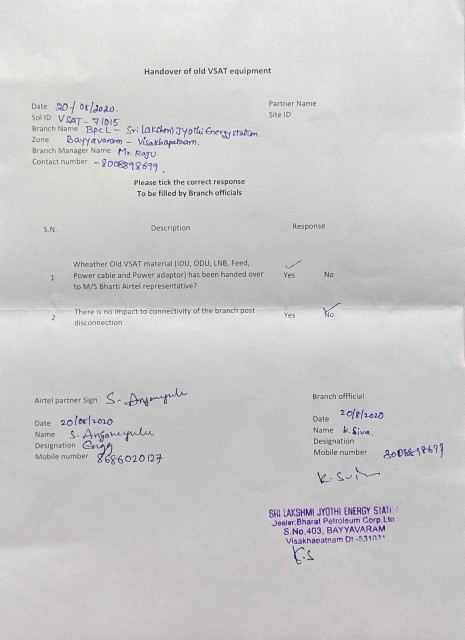 Handover of old VSAT equipment
Date 20/08/2020.
Partner Name
Sol ID VSAT - 71015
Site ID
Branch Name BPCL - Sri Lakshmi Jyothi Energy station.
Zone Bayyavaram - Visakhapatnam.
Branch Manager Name Mr. Raju.
Contact number - 8008898699.
Please tick the correct response
To be filled by Branch officials
S.N. Description Response
1 Wheather Old VSAT material (IDU, ODU, LNB, Feed,
Power cable and Power adaptor) has been handed over
to M/S Bharti Airtel representative? Yes No
2 There is no impact to connectivity of the branch post
disconnection Yes No
Airtel partner Sign S. Anjaneyulu
Date 20/08/2020
Name S. Anjaneyulu
Designation Engg
Mobile number 8686020127
Branch offficial
Date 20/8/2020
Name K. Siva.
Designation
Mobile number 8008898699
SRI LAKSHMI JYOTHI ENERGY
Dealer:Bharat Petroleum Corp.Ltd
S.No.403, BAYYAVARAM
Visakhapatnam Dt
K.S